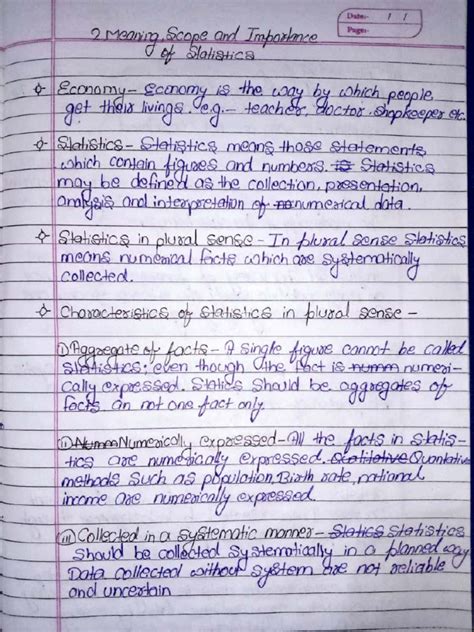 Date:- / /
Page:-
2 Meaning, Scope and Importance
of Statistics
Economy - Economy is the way by which people
get their livings. e.g. - teacher, doctor, shopkeeper etc.
Statistics - Statistics means those statements
which contain figures and numbers. Statistics
may be defined as the collection, presentation,
analysis and interpretation of numerical data.
Statistics in plural sense - In plural sense Statistics
means numerical facts which are systematically
collected.
Characteristics of Statistics in plural sense -
i) Aggregate of facts - A single figure cannot be called
statistics; even though the fact is numeri-
cally expressed. Statics should be aggregates of
facts an not one fact only.
ii) Numerically expressed - All the facts in statis-
tics are numerically expressed. Quantative
methods such as population, Birth rate, national
income are numerically expressed.
iii) Collected in a systematic manner - Statistics
should be collected systematically in a planned way
Data collected without system are not reliable
and uncertain